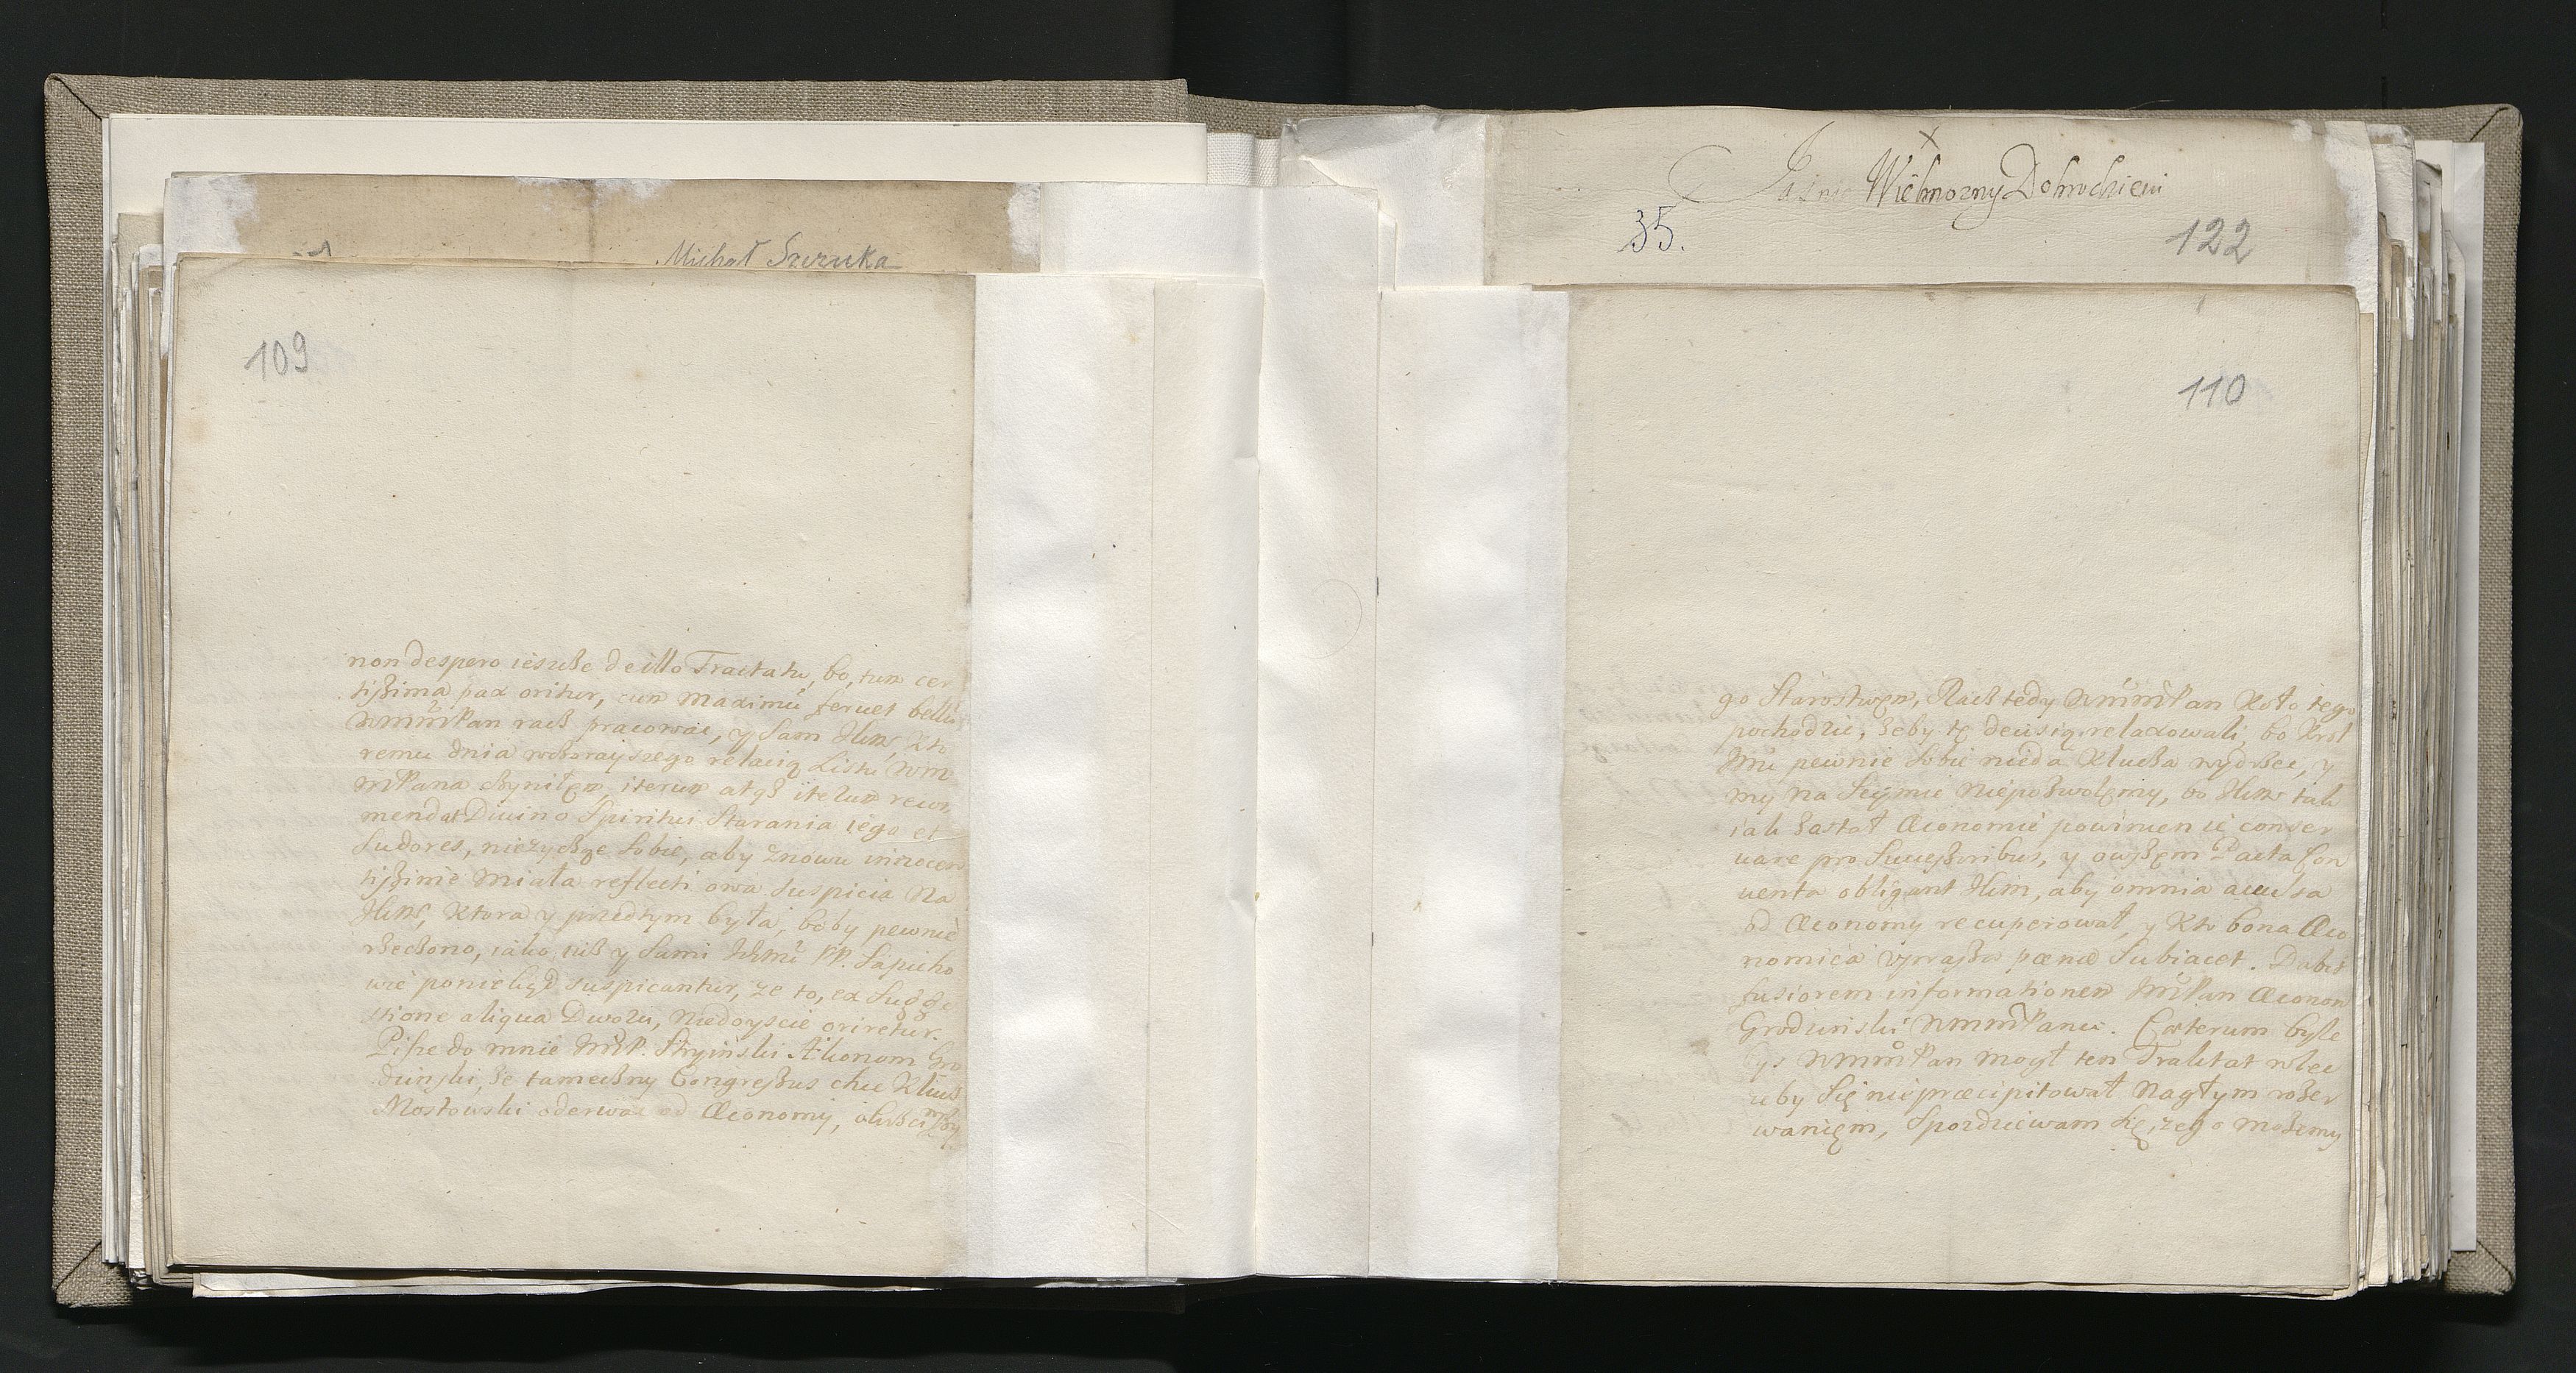 Michał Szczuka
109
non despero ieszcze de illo Tractatu, bo, tum cer
tißima pax oritur, cum maximũ feruet bellũ
WMMPan racz pracować, y sam KJMć Kto
remu dnia wczorayszego relacią Listu WM
MPana czyniłem, iterum atq3 iterum recom
mendat Diuino Spiritui Starania iego et
Sudores, nieżycząc sobie, aby znowu innocen
tißimè miała reflecti owa suspicia na
KJMć, Ktora y przedtym była, boby pewnie
rzeczono, iako iuż y sami Ichmć PP. Sapieho
wie poniekąd suspicantur, że to, ex sugge
stione aliqua Dworu, niedoyscie oriretur.
Pisze do mnie JMP. Ekonom Gro
dzinski, że tameczny Congreßus chce Klucz
Mostowski oderwać od Œconomij,
Jaśnie Wielmozny Dobrodzieiu
35.
122
110
go Starostwem, Racz tedy WMMPan Koło tego
pochodzić, żeby tę decisią relaxowali, bo Krol
JMć pewnie sobie nieda Klucza wydrzec, y
my na Seymie niepozwolemy, bo KJMć tak
iak zastał Œconomie powinien ie conser
uare pro Succeßoribus, y owszem Pacta Con
uenta obligant KJMć, aby omnia auulsa
od Œconomy recuperował, y Kto bona Œco
nomica vprasza pœnæ Subiacet. Dabit
fusiorem informationem JMPan Œconom
Grodzinski WMMPanu. Cæterum byle
bys WMMPan mogł ten Traktat wlec
uby się nie præcipitował nagłym rozer
waniem, Spodziewam się, że go możemy